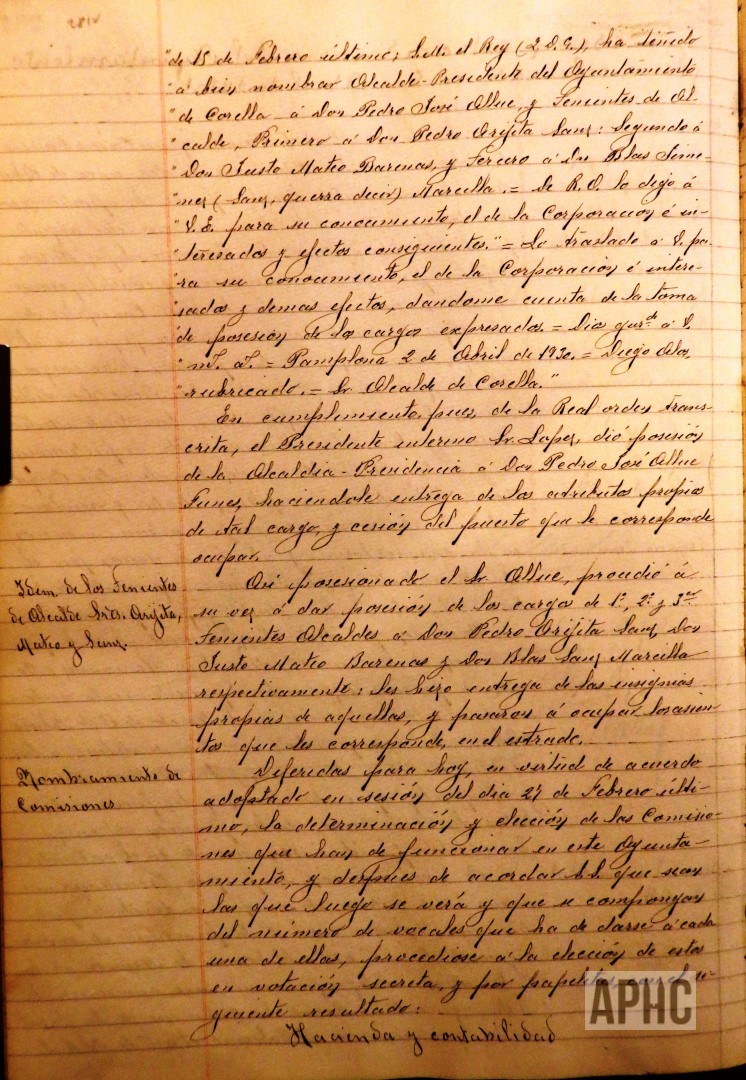 "de 15 de Febrero último; S.M. el Rey (q. D. G.), ha tenido
"á bien nombrar Alcalde-Presidente del Ayuntamiento
"de Corella á Don Pedro José Allue, y Tenientes de Al-
"calde, Primero á Don Pedro Arijita Sanz: Segundo á
"Don Justo Mateo Barenas, y Tercero á Dn Blas Jime-
"nez (Sanz, querra decir) Marcilla. = De R.O. lo digo á
"V. E. para su conocimiento, el de la Corporacion é in-
"teresados y efectos consiguientes." = Lo traslado á V. pa-
"ra su conocimiento, el de la Corporacion é intere-
"sados y demas efectos, dandome cuenta de la toma
"de posesion de los cargos expresados. = Dios gue á V.
"ms. as. = Pamplona 2 de Abril de 1930. = Diego
"rubricado. = Sr. Alcalde de Corella."
En cumplimiento, pues, de la Real orden trans-
crita, el Presidente interino Sr. Lopez, dió posesión
de la Alcaldia-Presidencia á Don Pedro José Allue
Funes, haciendole entrega de los atributos propios
de tal cargo, y cesión del puesto que le corresponde
ocupar.
Idem. de los Tenientes
de Alcalde Srs. Arijita,
Mateo y Sanz.
Asi posesionado el Sr. Allue, procedió á
su vez á dar posesión de los cargos de 1º, 2º y 3er
Tenientes Alcaldes á Don Pedro Arijita Sanz, Don
Justo Mateo Barenas y Don Blas Sanz Marcilla
respectivamente: les hizo entrega de las insignias
propias de aquellas, y pasaron á ocupar los asien-
tos que les corresponde, en el estrado.
Nombramiento de
Comisiones
Diferidas para hoy, en virtud de acuerdo
adoptado en sesión del dia 27 de Febrero últi-
mo, la determinación y elección de las Comisio-
nes que han de funcionar en este Ayunta-
miento, y despues de acordar S.S. que sean
las que luego se verá y que se compongan
del número de vocales que ha de darse á cada
una de ellas, procediose á la elección de estos
en votación secreta, y por papeletas, con el si-
guiente resultado:
Hacienda y contabilidad
APHC